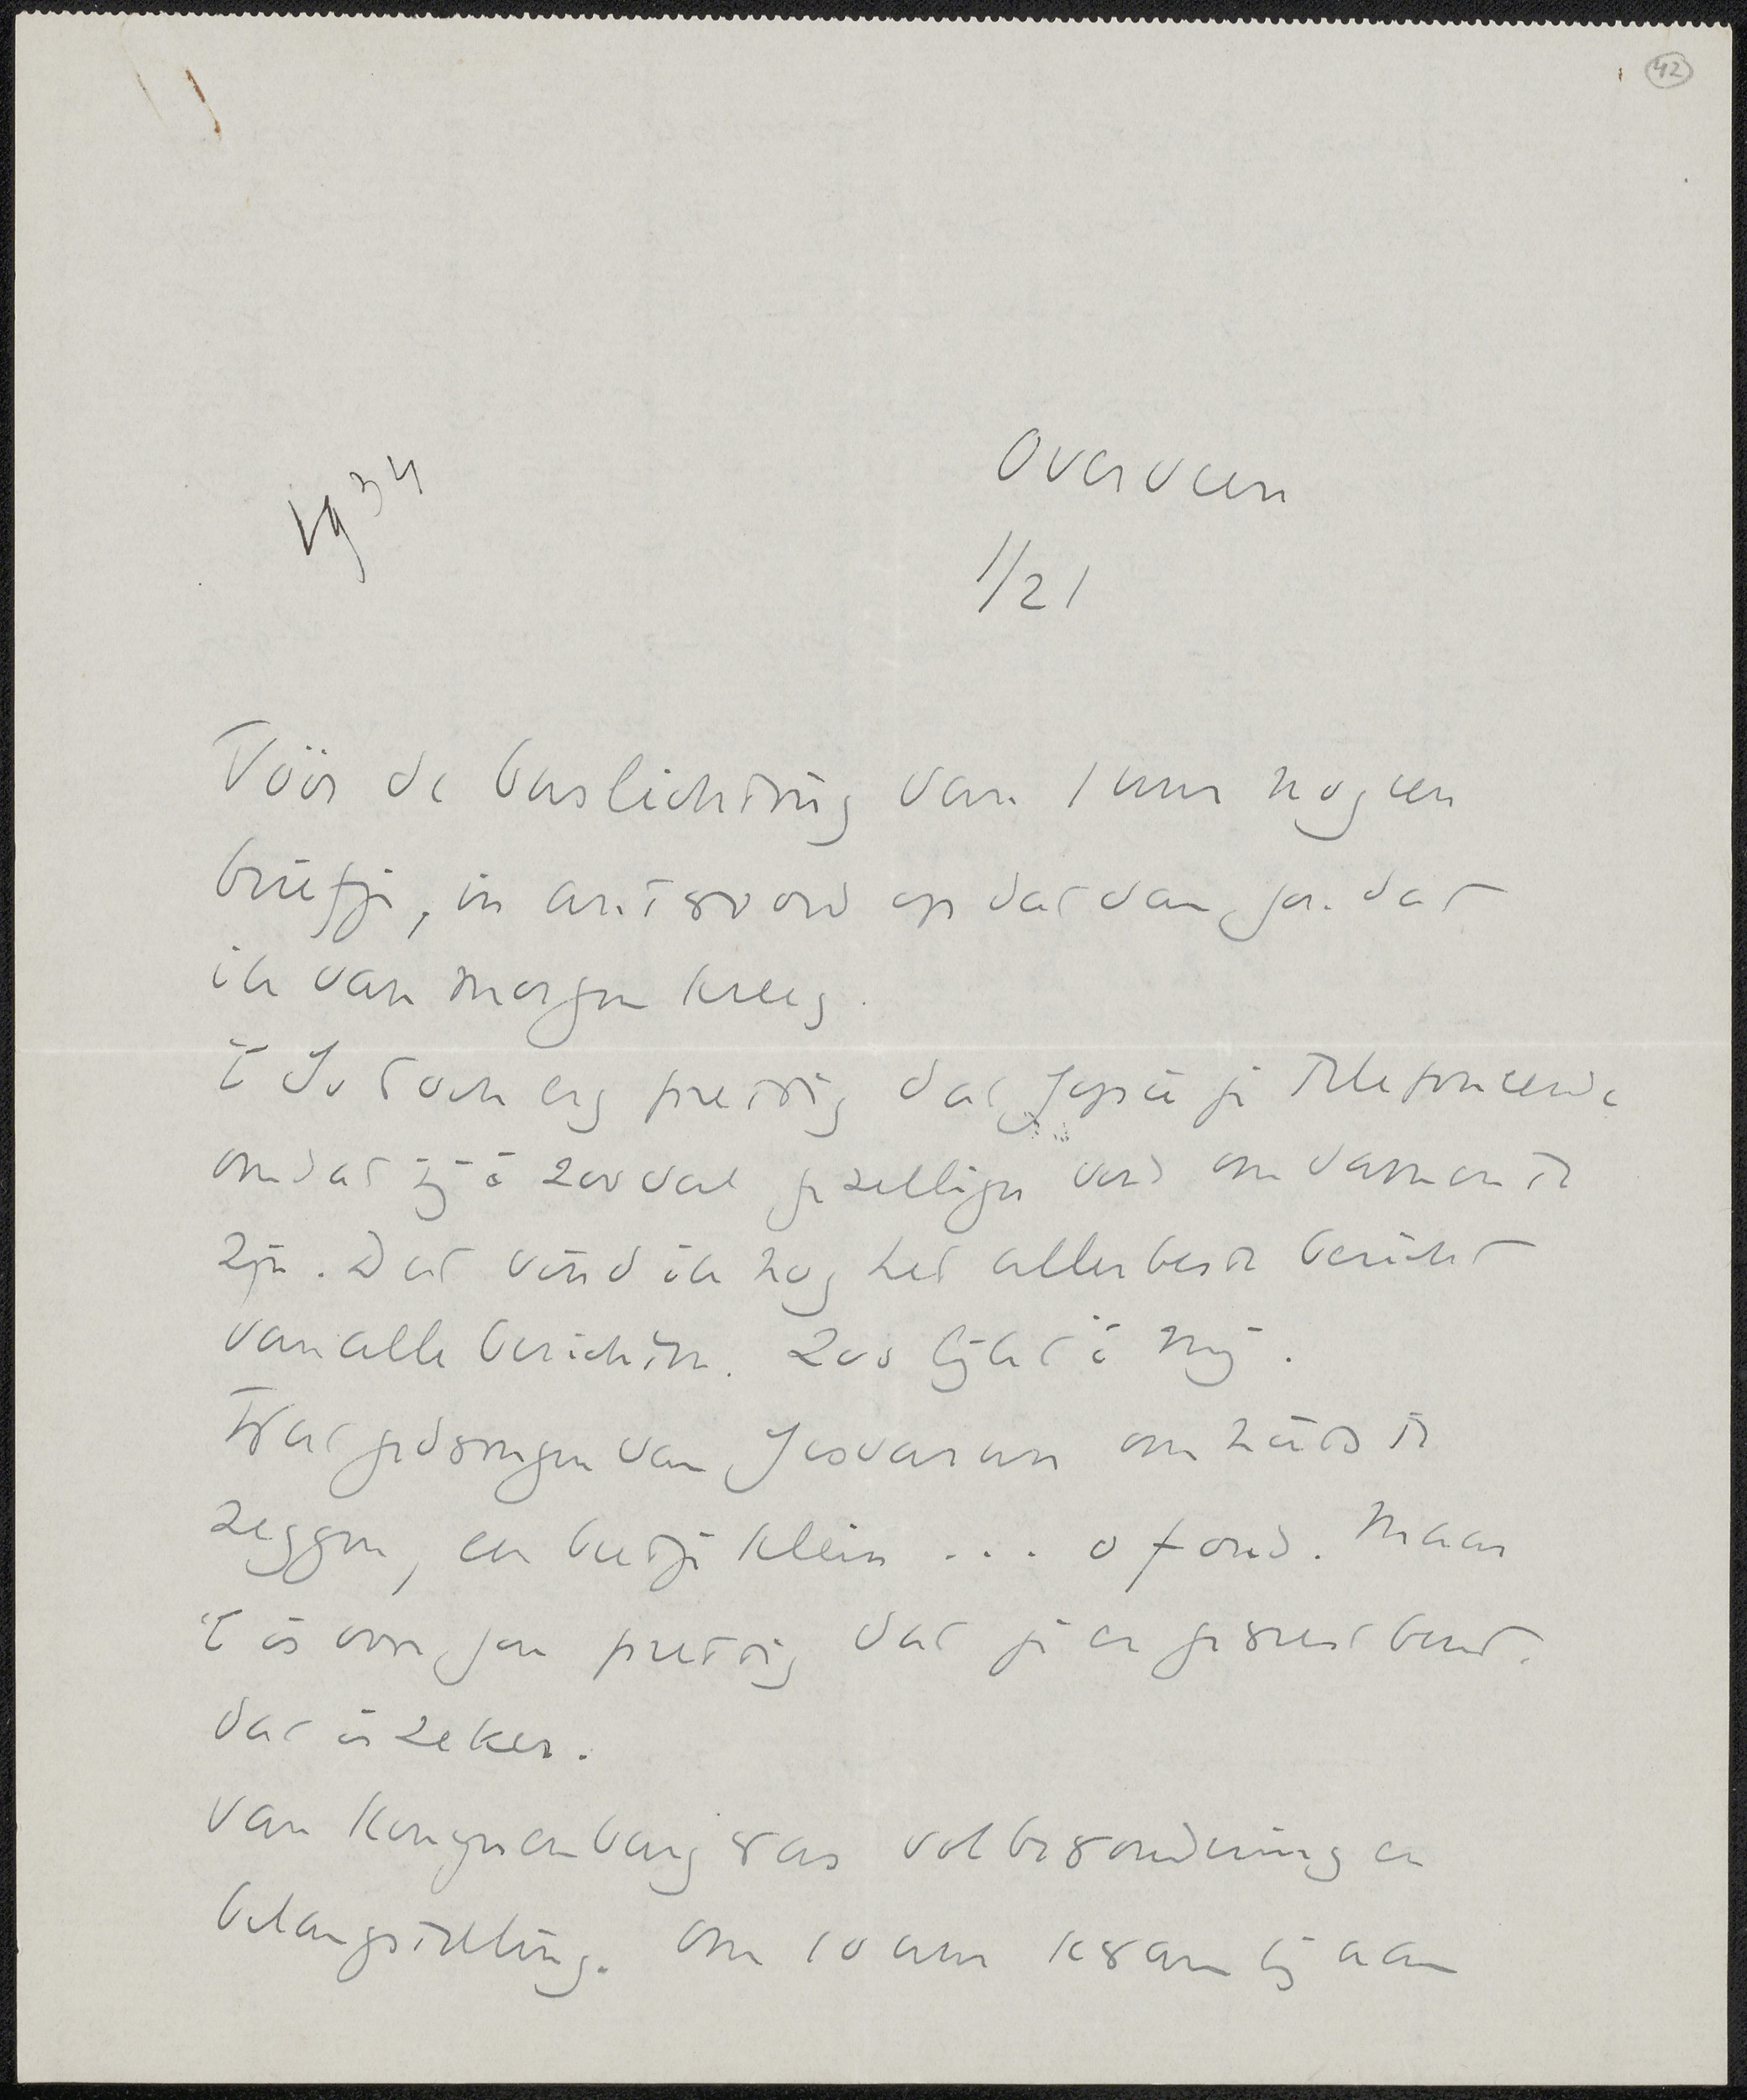 42
1934
Overveen
1/21
Vóór de buslichting van 1 uur nog een
briefje, in antwoord op dat van jou dat
ik van morgen kreeg.
't Is toch erg prettig dat je telefoneerde
omdat zij 't zooveel gezelliger vond om samen te
zijn. Dat vind ik nog het allerbeste bericht
van alle berichten. Zoo lijkt 't mij.
Wat gedwongen van om zoiets te
zeggen, een beetje klein ... o fond. Maar
't is voor jou prettig dat je er geweest bent.
dat is zeker.
Van was vol bewondering en
belangstelling. Om 10 uur kwam hij aan